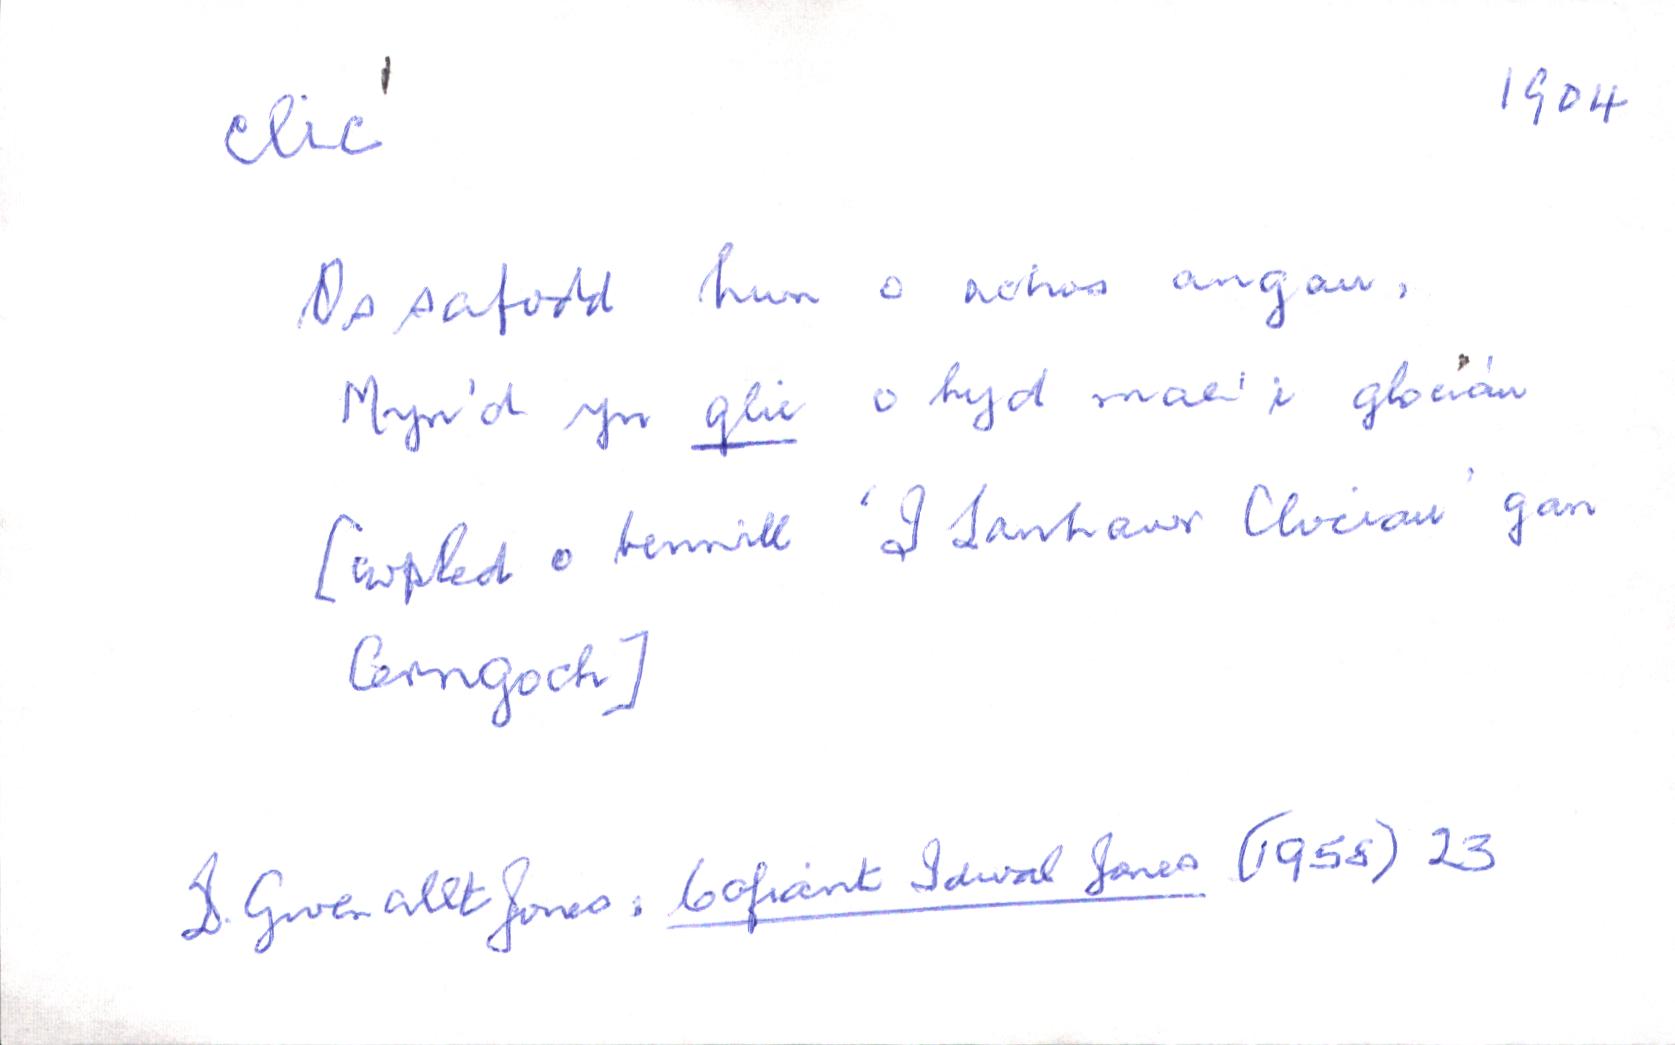 clic¹
1904
Os safodd hwn o achos angau,
Myn'd yn glic o hyd mae'i glociau
[cwpled o bennill 'I Lanhawr Clociau' gan
Cerngoch]
D. Gwenallt Jones, Cofiant Idwal Jones (1958) 23